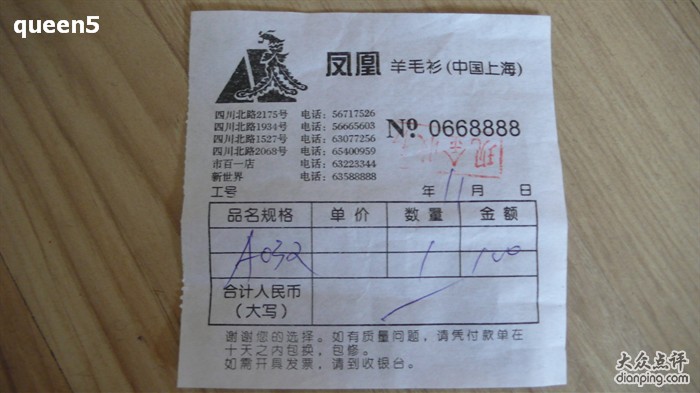 queen5
凤凰 羊毛衫(中国上海)
四川北路2175号 电话:56717526
四川北路1934号 电话:56665603
四川北路1527号 电话:63077256
四川北路2068号 电话:65400959
市百一店 电话:63223344
新世界 电话:63588888
№ 0668888
现金
工号 年 11 月 日
品名规格 单价 数量 金额
A032 1 100
合计人民币
(大写)
谢谢您的选择。如有质量问题,请凭付款单在
十天之内包换,包修。
如需开具发票,请到收银台。
大众点评
dianping.com